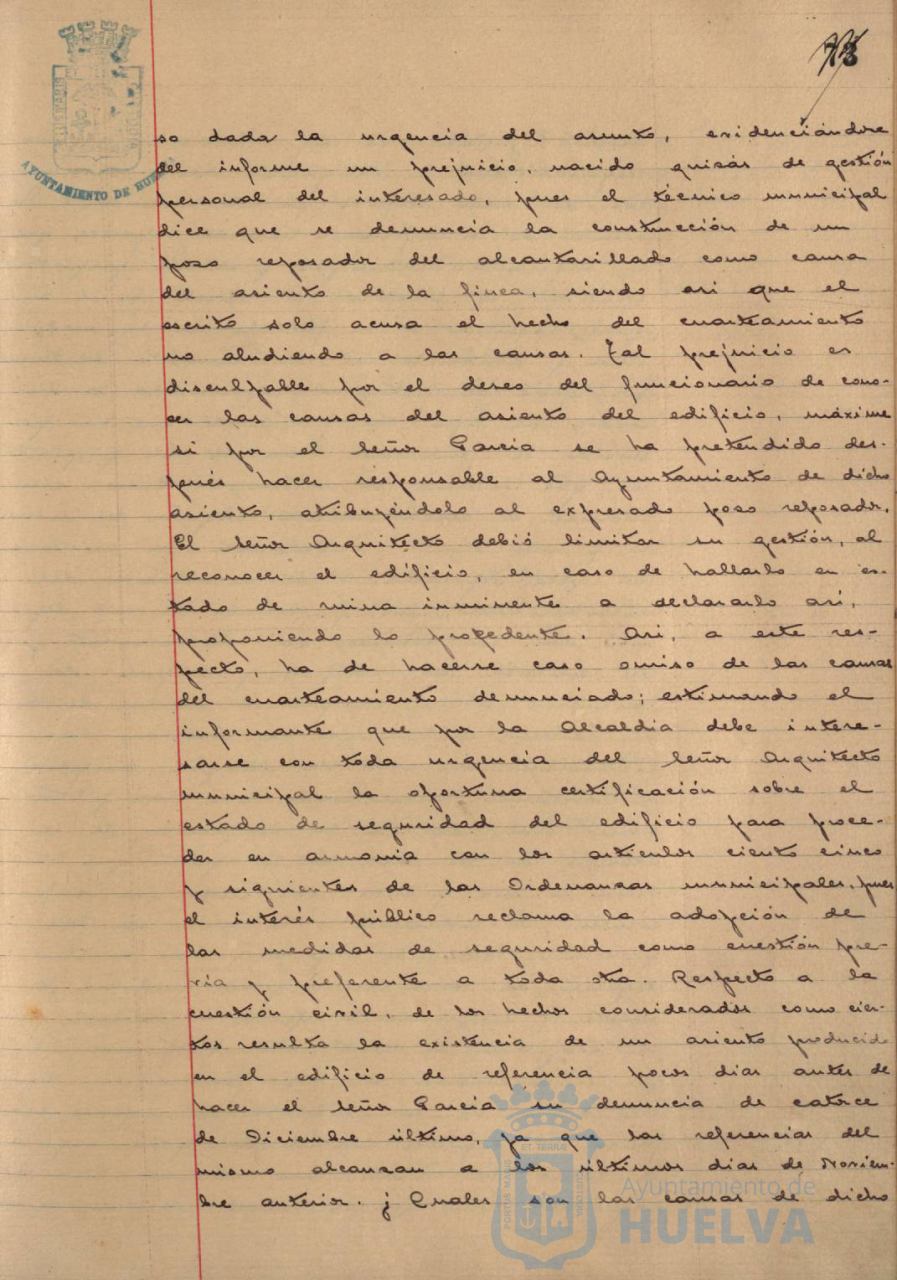 73
AYUNTAMIENTO DE HU
so dada la urgencia del asunto, evidenciándose
del informe un prejuicio, nacido quizás de gestión
personal del interesado, pues el técnico municipal
dice que se denuncia la construcción de un
pozo reposador del alcantarillado como causa
del asiento de la finca, siendo asi que el
escrito solo acusa el hecho del cuarteamiento
no aludiendo a las causas. Tal prejuicio es
disculpable por el deseo del funcionario de cono-
cer las causas del asiento del edificio, máxime
si por el Señor Garcia se ha pretendido des-
pués hacer responsable al Ayuntamiento de dicho
asiento, atribuyéndolo al expresado pozo reposador.
El Señor Arquitecto debió limitar su gestión, al
reconocer el edificio, en caso de hallarlo en es-
tado de ruina inminente a declararlo así,
proponiendo lo procedente. Asi, a este res-
pecto, ha de hacerse caso omiso de las causas
del cuarteamiento denunciado; estimando el
informante que por la Alcaldia debe intere-
sarse con toda urgencia del Señor Arquitecto
municipal la oportuna certificación sobre el
estado de seguridad del edificio para proce-
der en armonia con los articulos ciento cinco
y siguientes de las Ordenanzas municipales, pues
el interés público reclama la adopción de
las medidas de seguridad como cuestión pre-
via y preferente a toda otra. Respecto a la
cuestión civil, de los hechos considerados como cier-
tos resulta la existencia de un asiento producido
en el edificio de referencia pocos dias antes de
hacer el Señor Garcia su denuncia de catorce
de Diciembre último, ya que las referencias del
mismo alcanzan a los últimos dias de Noviem-
bre anterior. ¿Cuales son las causas de dicho
Ayuntamiento de
HUELVA